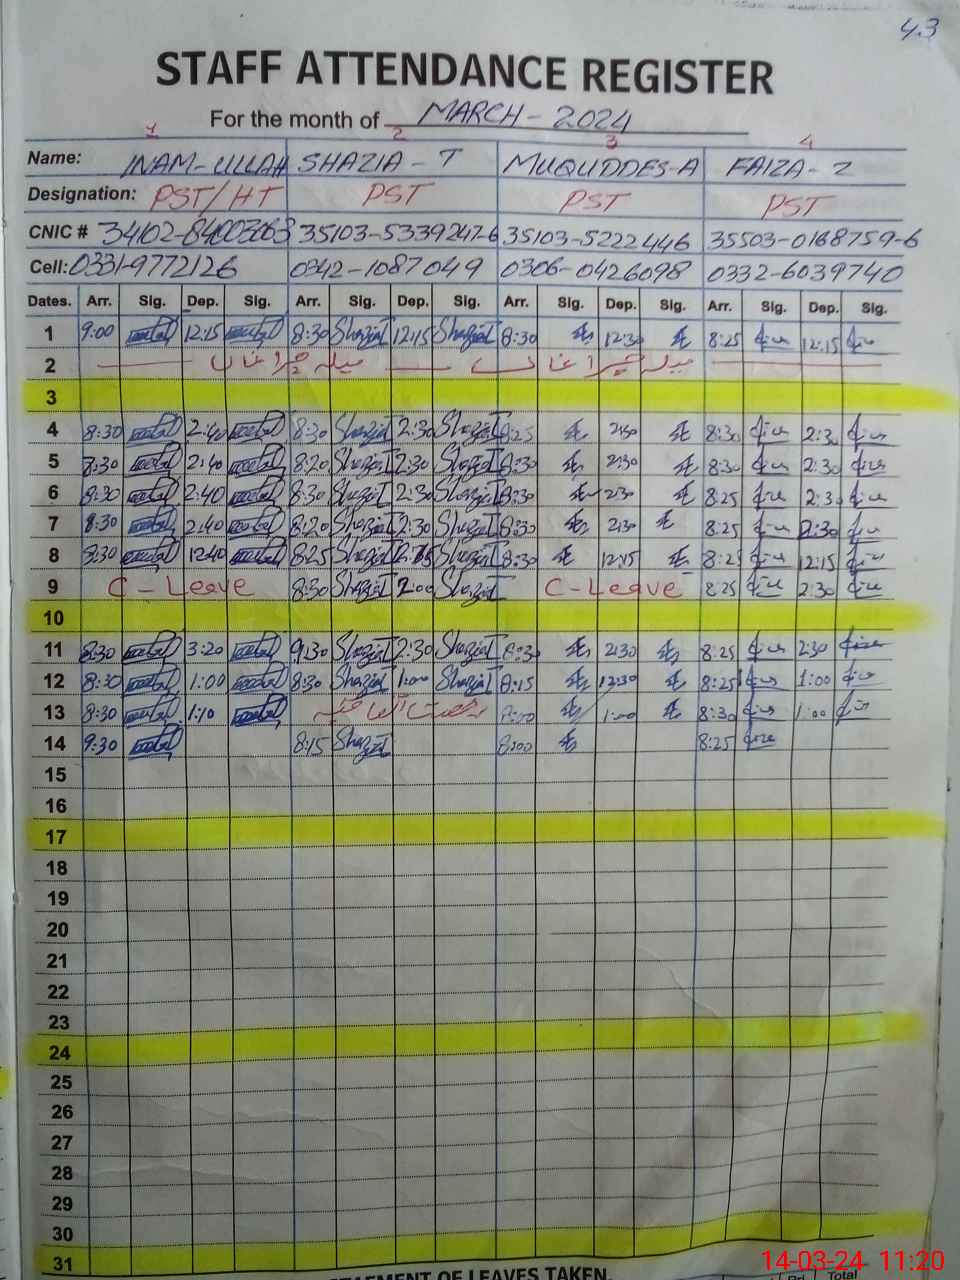 43
STAFF ATTENDANCE REGISTER
For the month of MARCH - 2024
1 2 3 4
Name: INAM-ULLAH SHAZIA - T MUQUDDES-A FAIZA - Z
Designation: PST/HT PST PST PST
CNIC # 34102-84003063 35103-5339247-6 35103-5222446 35503-0168759-6
Cell: 0331-9772126 0342-1087049 0306-0426098 0332-6039740
Dates. Arr. Sig. Dep. Sig. Arr. Sig. Dep. Sig. Arr. Sig. Dep. Sig. Arr. Sig. Dep. Sig.
1 9:00 12:15 8:30 ShaziaT 12:15 ShaziaT 8:30 12:30 8:25 12:15
2 میلہ چراغاں میلہ چراغاں
3
4 8:30 2:40 8:30 ShaziaT 2:30 ShaziaT 8:25 2:30 8:30 2:30
5 8:30 2:40 8:20 ShaziaT 2:30 ShaziaT 8:30 2:30 8:30 2:30
6 8:30 2:40 8:30 ShaziaT 2:30 ShaziaT 8:30 2:30 8:25 2:30
7 8:30 2:40 8:20 ShaziaT 2:30 ShaziaT 8:30 2:30 8:25 2:30
8 8:30 12:40 8:25 ShaziaT ShaziaT 8:30 12:15 8:25 12:15
9 C - Leave 8:30 ShaziaT 2:00 ShaziaT C - Leave 8:25 2:30
10
11 8:30 3:20 9:30 ShaziaT 2:30 ShaziaT 8:30 2:30 8:25 2:30
12 8:30 1:00 8:30 ShaziaT 1:00 ShaziaT 8:15 12:30 8:25 1:00
13 8:30 1:10 1:00 8:30 1:00
14 9:30 8:15 ShaziaT 8:00 8:25
15
16
17
18
19
20
21
22
23
24
25
26
27
28
29
30
31
14-03-24 11:20
OF LEAVES TAKEN.
Total